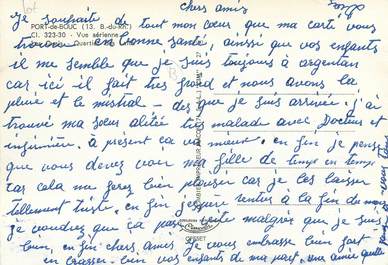 chers amis
PORT-de-BOUC (13. B.-du-Rh.)
Cl. 323-30 - Vue aérienne
Quartier
je souhaite de tout mon cœur que ma carte vous
trouve en bonne santé, ainsi que vos enfants
il me semble que je suis toujours à argentan
car ici il fait très froid et nous avons la
pluie et le mistral - des que je suis arrivée j'ai
trouvé ma sœur alitée très malade avec Docteur et
infirmière. à présent ca va mieux, en fin je pense
que vous devez voir ma fille de temps en temps
car cela me ferez bien plaisir car je les laisser
tellement triste, en fin je pense rentrer à la fin de mois
je voudrez que ça malgré que je suis
bien, en fin chers amis je vous embrasse bien fort
embrasser bien vos enfants de ma part, une amie
COMBIER